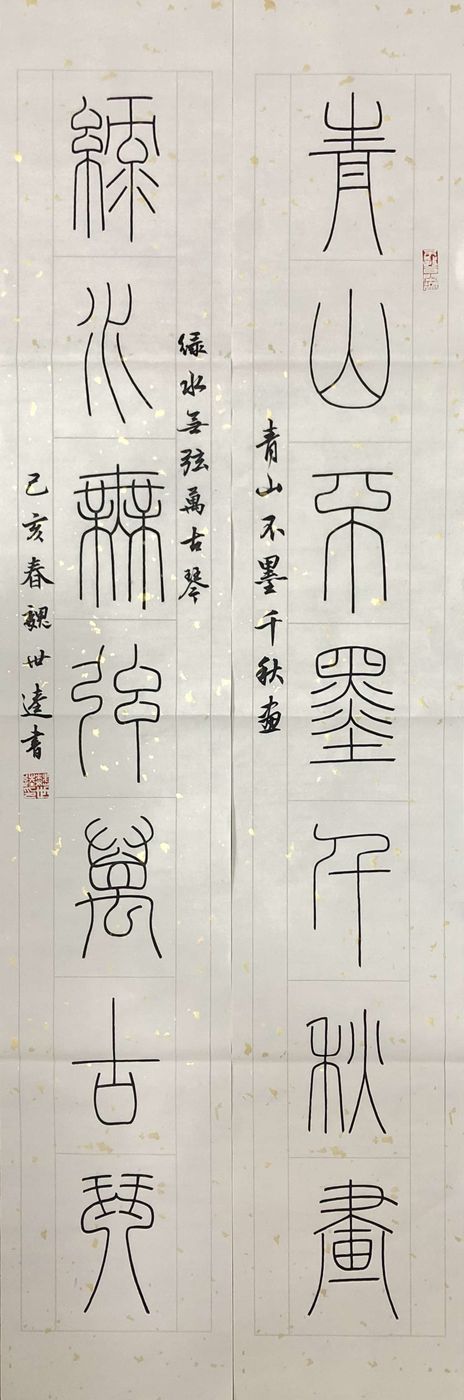 青山不墨千秋畫
青山不墨千秋画
綠水無弦萬古琴
绿水無弦萬古琴
己亥春魏世達書